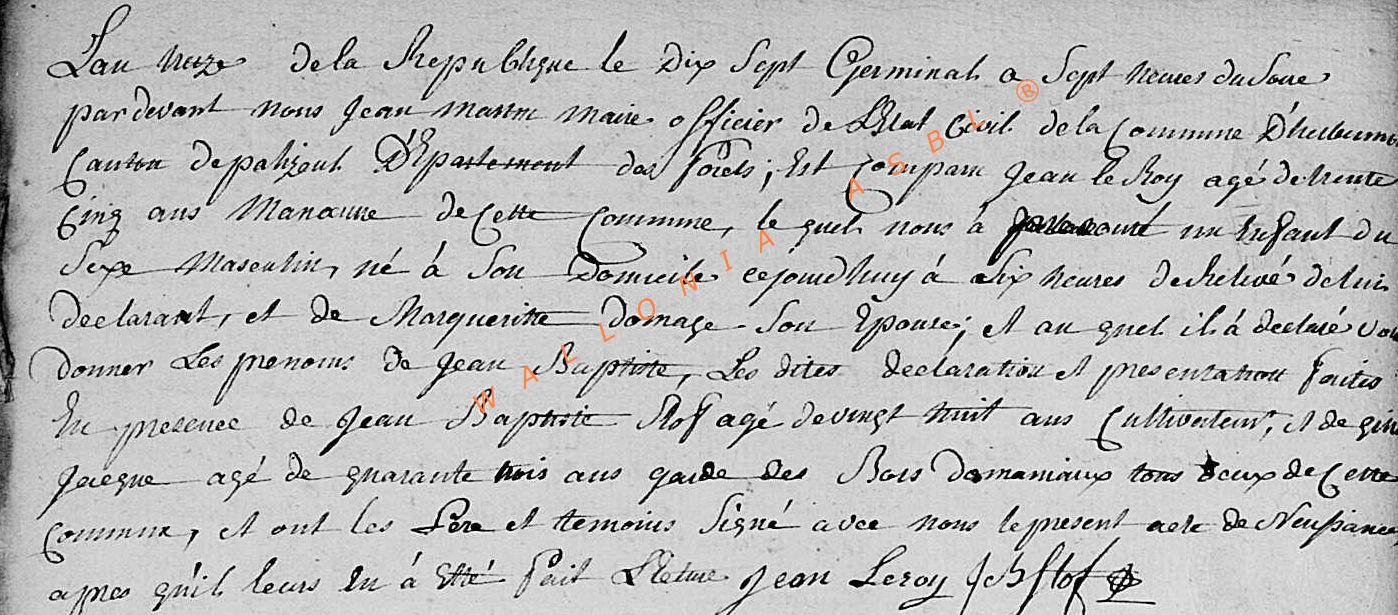 L'an treize de la Republique le Dix Sept Germinal a Sept heures du Soire
pardevant nous Jean Martin Maire officier de L'Etat Civil de la Commune D'herbumo
Canton de palizeul D'Epartement des forets; Est Comparu Jean le Roy agé de trente
Cinq ans Manœuvre de Cette Commune, le quel nous à un Enfant du
Sexe Masculin, né à Son Domicile cejourdhuy à Six heures de Relevé de lui
declarant, et de Margueritte Domage Son Epouse; et au quel il à declaré vou
donner Les prenoms de Jean Baptiste, Les dites declaration et presentation faites
En presence de Jean Baptiste Stof agé de vingt huit ans Cultivateur, et de
Jacque agé de quarante trois ans garde des Bois Domaniaux tous deux de Cette
Commune, et ont les Pere et temoins Signé avec nous le present acte de Neussance
apres qu'il leurs En à Etté fait Lecture Jean Leroy JB Stof
WALLONIA ASBL ®